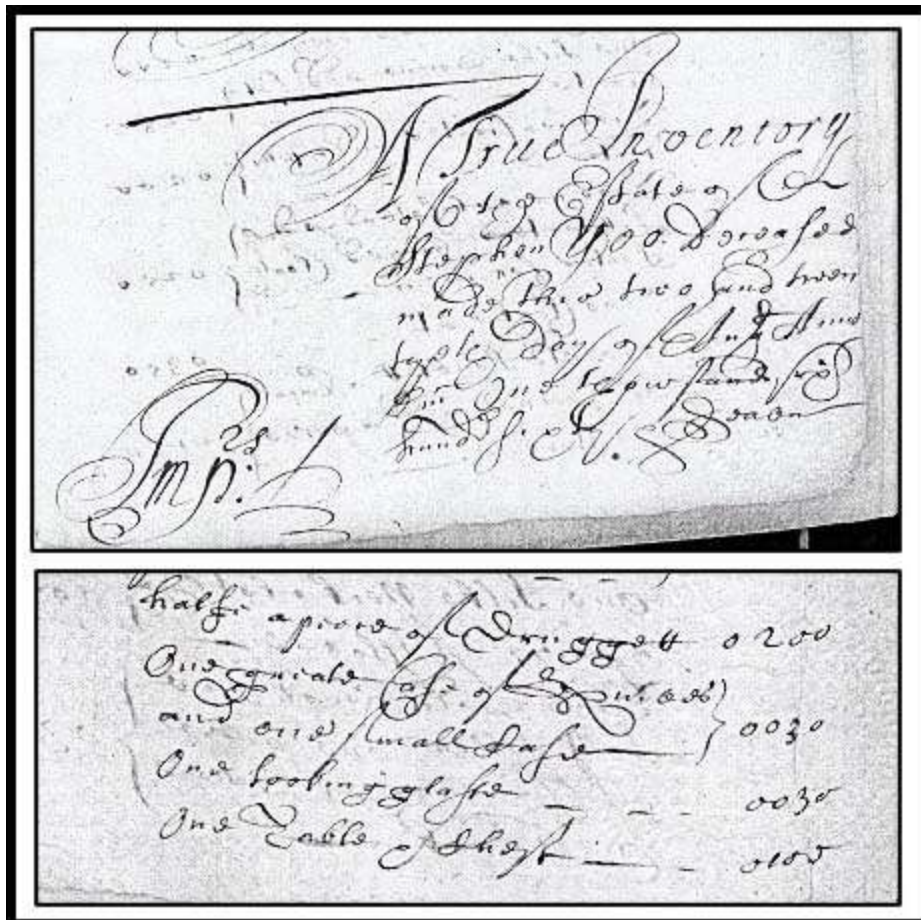 A True Inventory
of the Estate of
Stephen Yoo. deceased
made this two and twen
tyeth Day of Aug
One thousand six
hundd
Seaven
ImpRs:
halfe a peece of Druggett 0200
One greate Case of Knives
and one small Case 0030
One lookingglasse 0030
One Table & Chest 0100